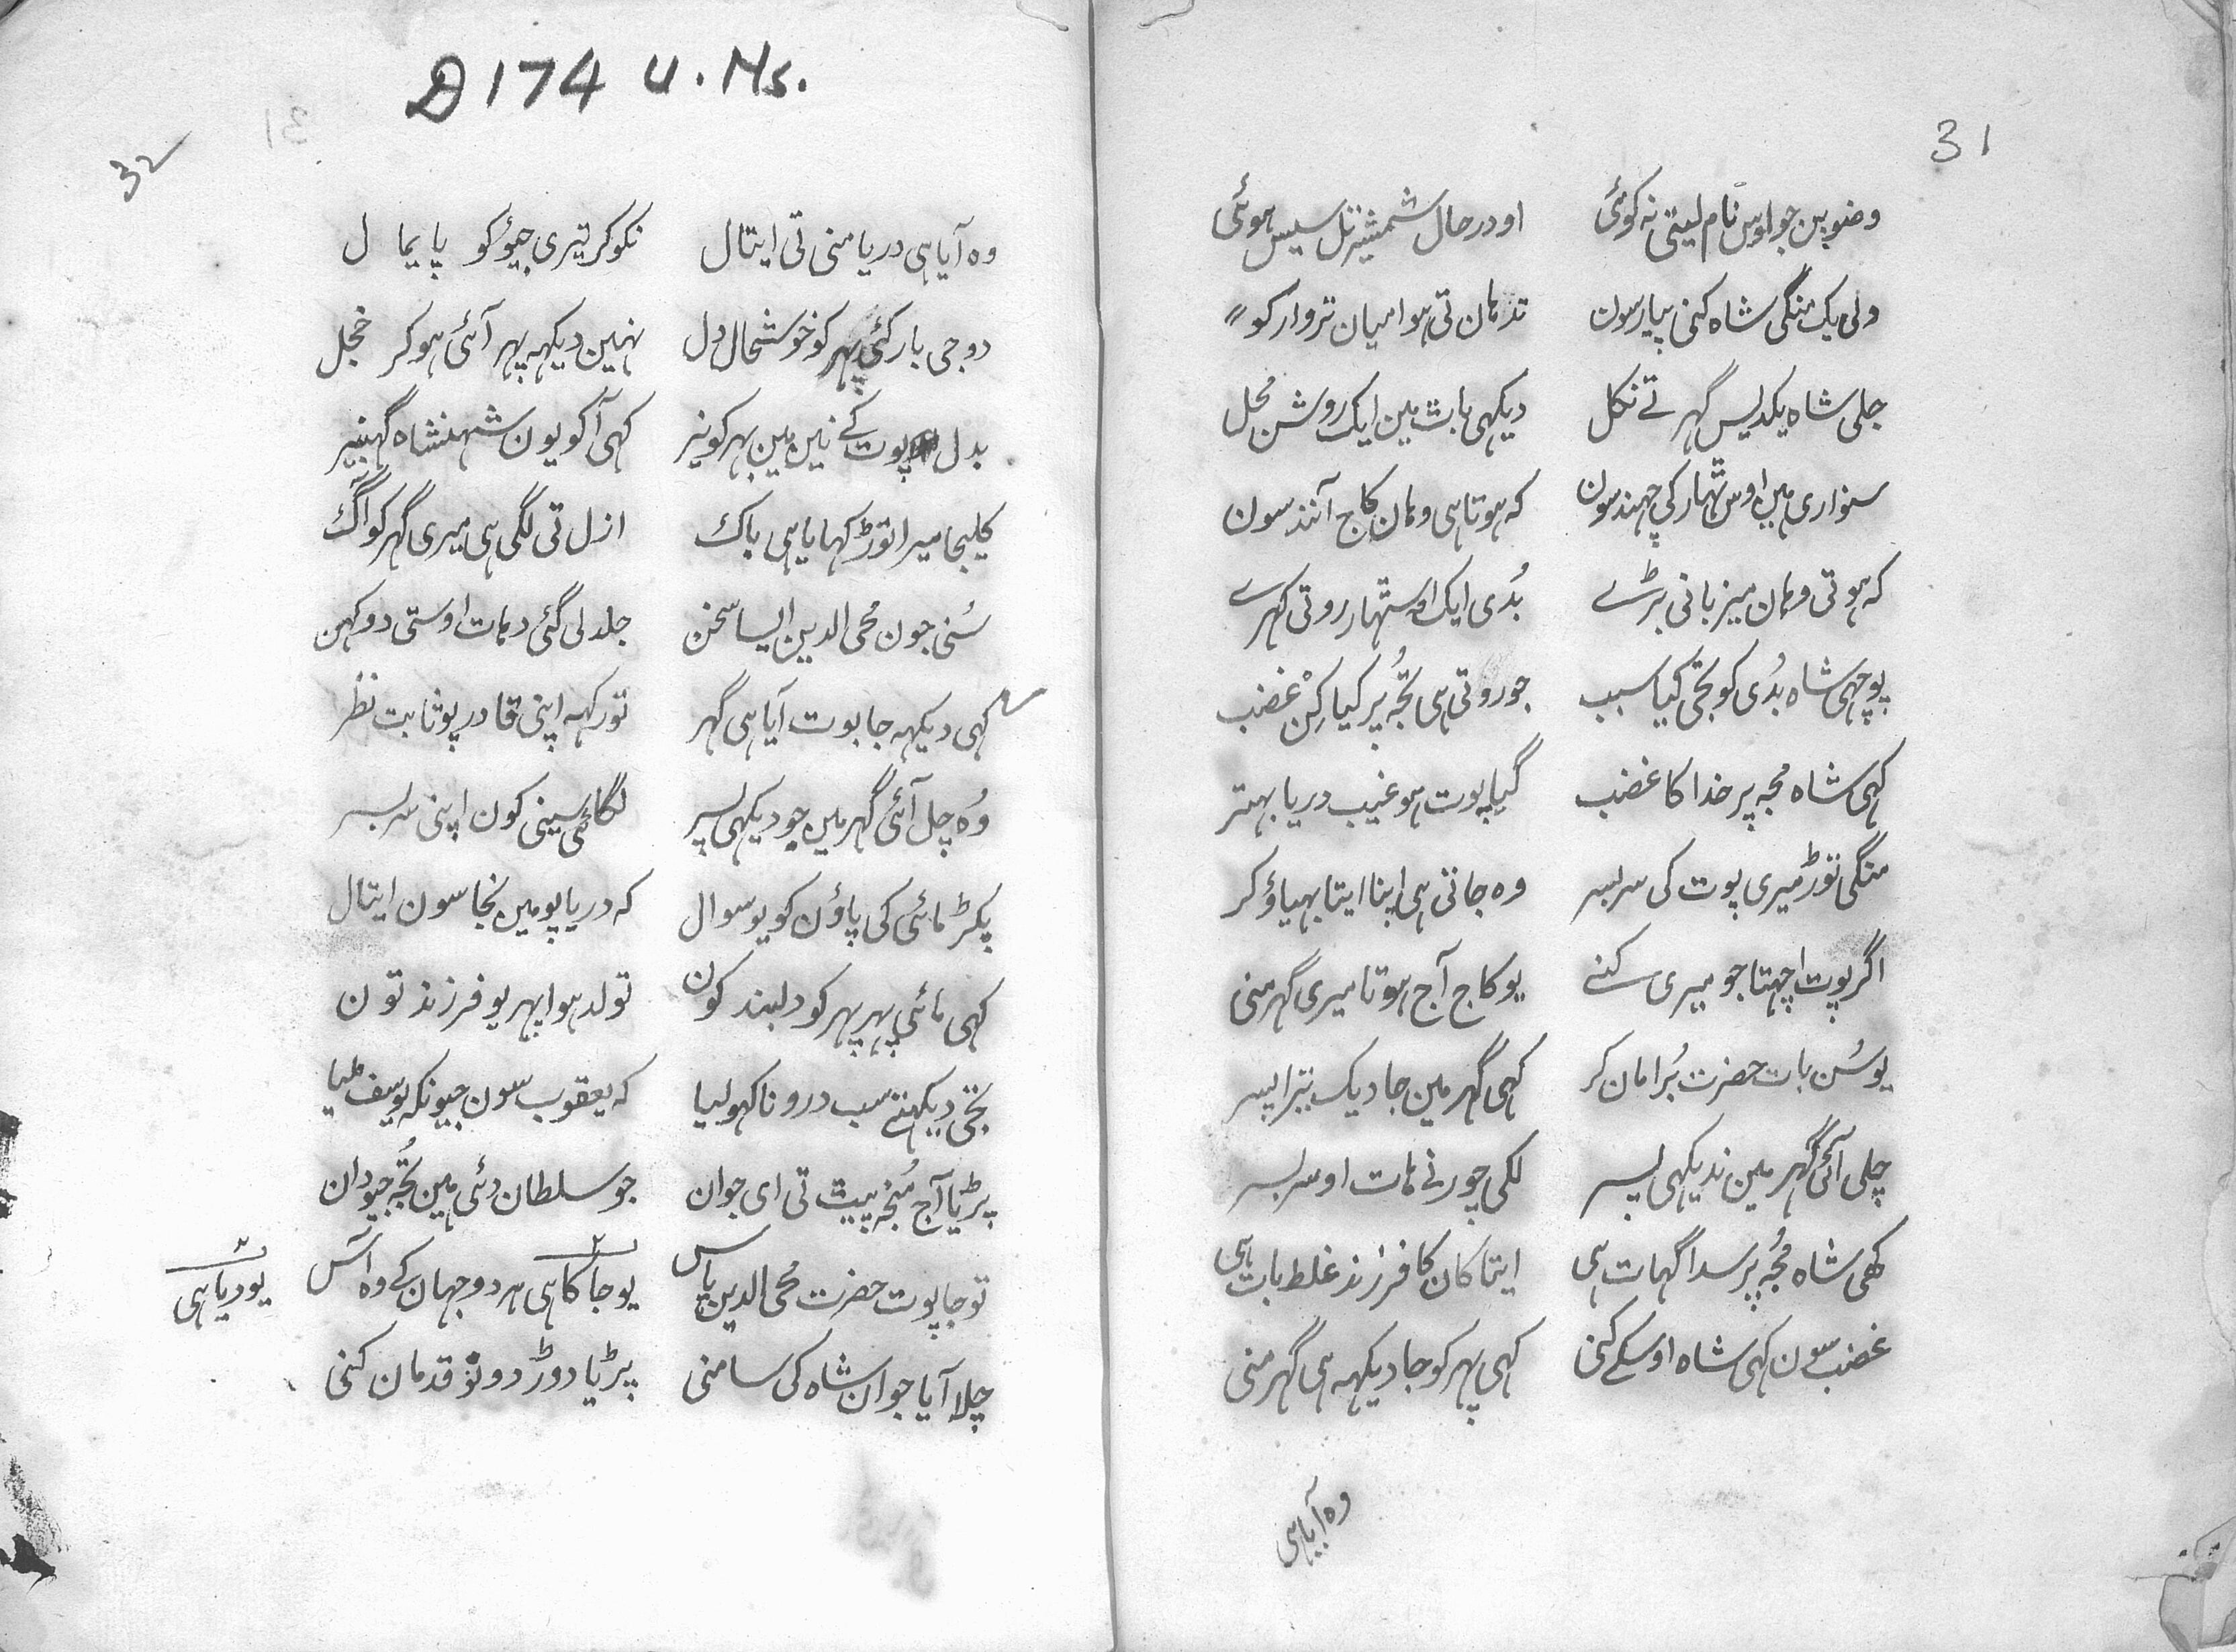 31
وضو بن جو اوس نام لیتی نہ کوئی او در حال شمشیر تل سیس ہوئی
ولی یک منگی شاہ کنی پیار سون تدہان تی ہوا میان تروار کو
چلی شاہ یکدیس گہر تے نکل دیکہی باٹ مین ایک روشن محل
سنواری ہین اوس ٹہار کی چہند سون کہ ہوتا ہی وہان کاج آنند سون
کہ ہوتی وہان میزبانی بڑے بُدی ایک او ٹہار روتی کہرے
پوچہی شاہ بُدی کو تجی کیا سبب جو روتی ہی تُجہ پر کیا کِن غضب
کہی شاہ مجہ پر خدا کا غضب گیا پوت ہو غیب دریا بہتر
منگی توڑ میری پوت کی سربسر وہ جاتی ہی اپنا ایتا بہیاؤ کر
اگر پوت اچہتا جو میری کنے یو کاج آج ہوتا میری گہر منی
یو سُن بات حضرت بُرا مان کر کہی گہر مین جا دیک تیرا پسر
چلی آئی گہر مین ندیکہی پسر لگی چورنے ہات او سربسر
کہی شاہ مُجہ پر سدا گہات ہی ایتا کان کا فرزند غلط بات ہی
غضب سون کہی شاہ اوسکے کنی کہی پہر کو جا دیکہہ ہی گہر منی
وہ آیا ہی
D 174 U. Ms.
32
وہ آیا ہی دریا منی تی ایتال نکو کر تیری جیؤ کو پایمال
دوجی بار گئی پہر کو خوشحال دل نہین دیکہہ پہر آئی ہو کر خجل
بدل پوت کے نین مین بہر کو نیر کہی آ کو یون شہنشاہ گہنبیر
کلیجا میرا توڑ کہایا ہی باک ازل تی لگی ہی میری گہر کو آگ
سُنی جون محی الدین ایسا سخن جلد لی گئی دہات اوستی دو کہن
کہی دیکہہ جا پوت آیا ہی گہر تو رکہہ اپنی قادر پو ثابت نظر
وُہ چل آئی گہر مین جو دیکہی پسر لگائی سینی کون اپنی سربسر
پکڑ مائی کی پاؤن کو یو سوال کہ دریا پو مین نجاسون ایتال
کہی مائی پہر پہر کو دلبند کون تولد ہوا پہر یو فرزند تون
تجی دیکہتے سب درونا کہولیا کہ یعقوب سون جیونکہ یوسف ملیا
پڑیا آج مُنجہ پیٹ تی ای جوان جو سلطان دئی ہین تُجہ جیودان
تو جا پوت حضرت محی الدین پاس یو جاگا ہی ہر دو جہان کے وہ آس یو دریا ہی
چلا آیا جوان شاہ کی سامنی پڑیا دوڑ دونو قدمان کنی